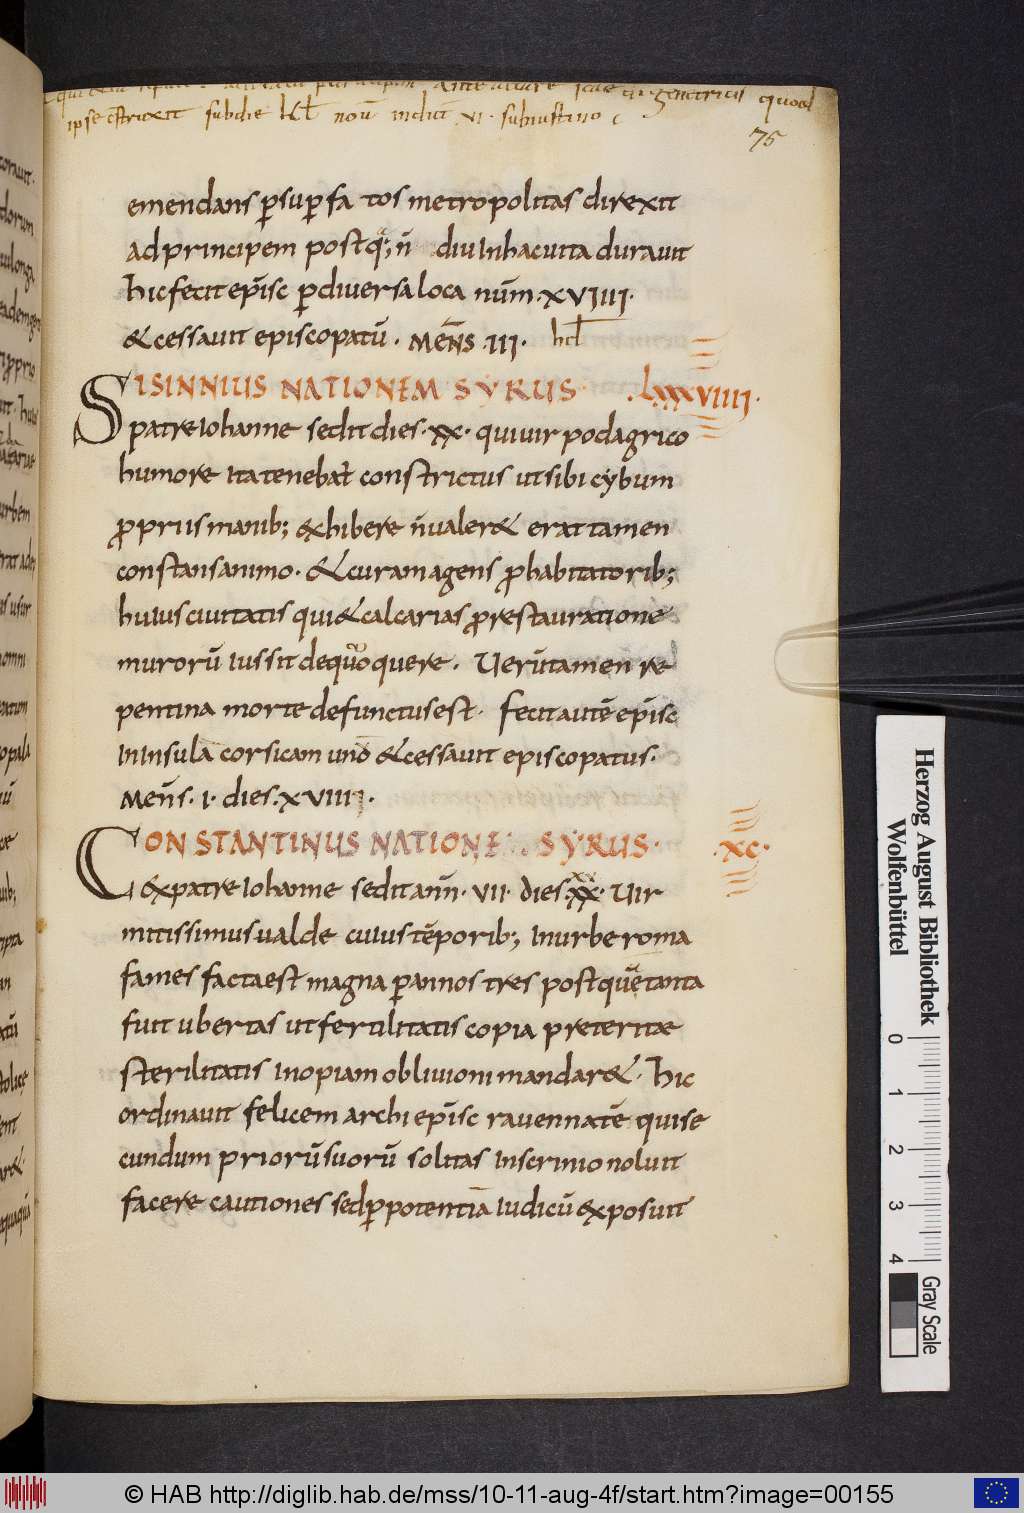 ante altare scae di genetricis quod
ipse cstruxit subdie kł nou indict vi. subiustino
75
emendans psupfa tos metropolitas direxit
adprincipem postq; n̄ diu Inhacuita durauit
hicfecit ep̄isc pdiuersaloca num̄.XVIIII.
&cessauit episcopatū. men̄s .III. hcł
SISINNIUS NATIONEM SYRUS. .LXXXVIIII.
patre Iohanne sedit dies .XX. quiuir podagrico
humore Itatenebat constrictus utsibi cybum
propriis manib; exhibere n̄ualer& erat tamen
constansanimo. &curamagens prohabitatorib;
huius ciuitatis qui&calcarias prorestauratione
murorū Iussit dequoquere. Uerūtamen re
pentina morte defunctusest. fecit autē ep̄isc
InInsula corsicam unō &cessauit episcopatus.
Men̄s. I. dies. XVIIII.
CONSTANTINUS NATIONE. SYRUS. .XC.
expatre Iohanne sedit ann̄. VII. dies. XX. Uir
mitissimus ualde cuius tēporib; Inurbe roma
fames factaest magna pannos tres post quē tanta
fuit ubertas ut fertilitatis copia preteritae
sterilitatis Inopiam obliuioni mandar&. hic
ordinauit felicem archi ep̄isc rauennatē quise
cundum priorū suorū solitas Inscrinio noluit
facere cautiones sed ppotentiā Iudicū exposuit
Herzog August Bibliothek
Wolfenbüttel
0 1 2 3 4
Gray Scale
© HAB http://diglib.hab.de/mss/10-11-aug-4f/start.htm?image=00155